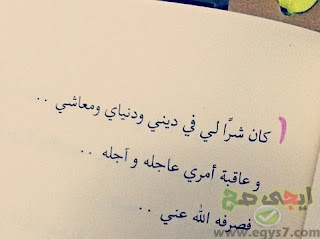 كان شرًا لي في ديني ودنياي ومعاشي ..
و عاقبة أمري عاجله و آجله ..
فصرفه الله عني ..
ايجى صح
www.eqys7.com